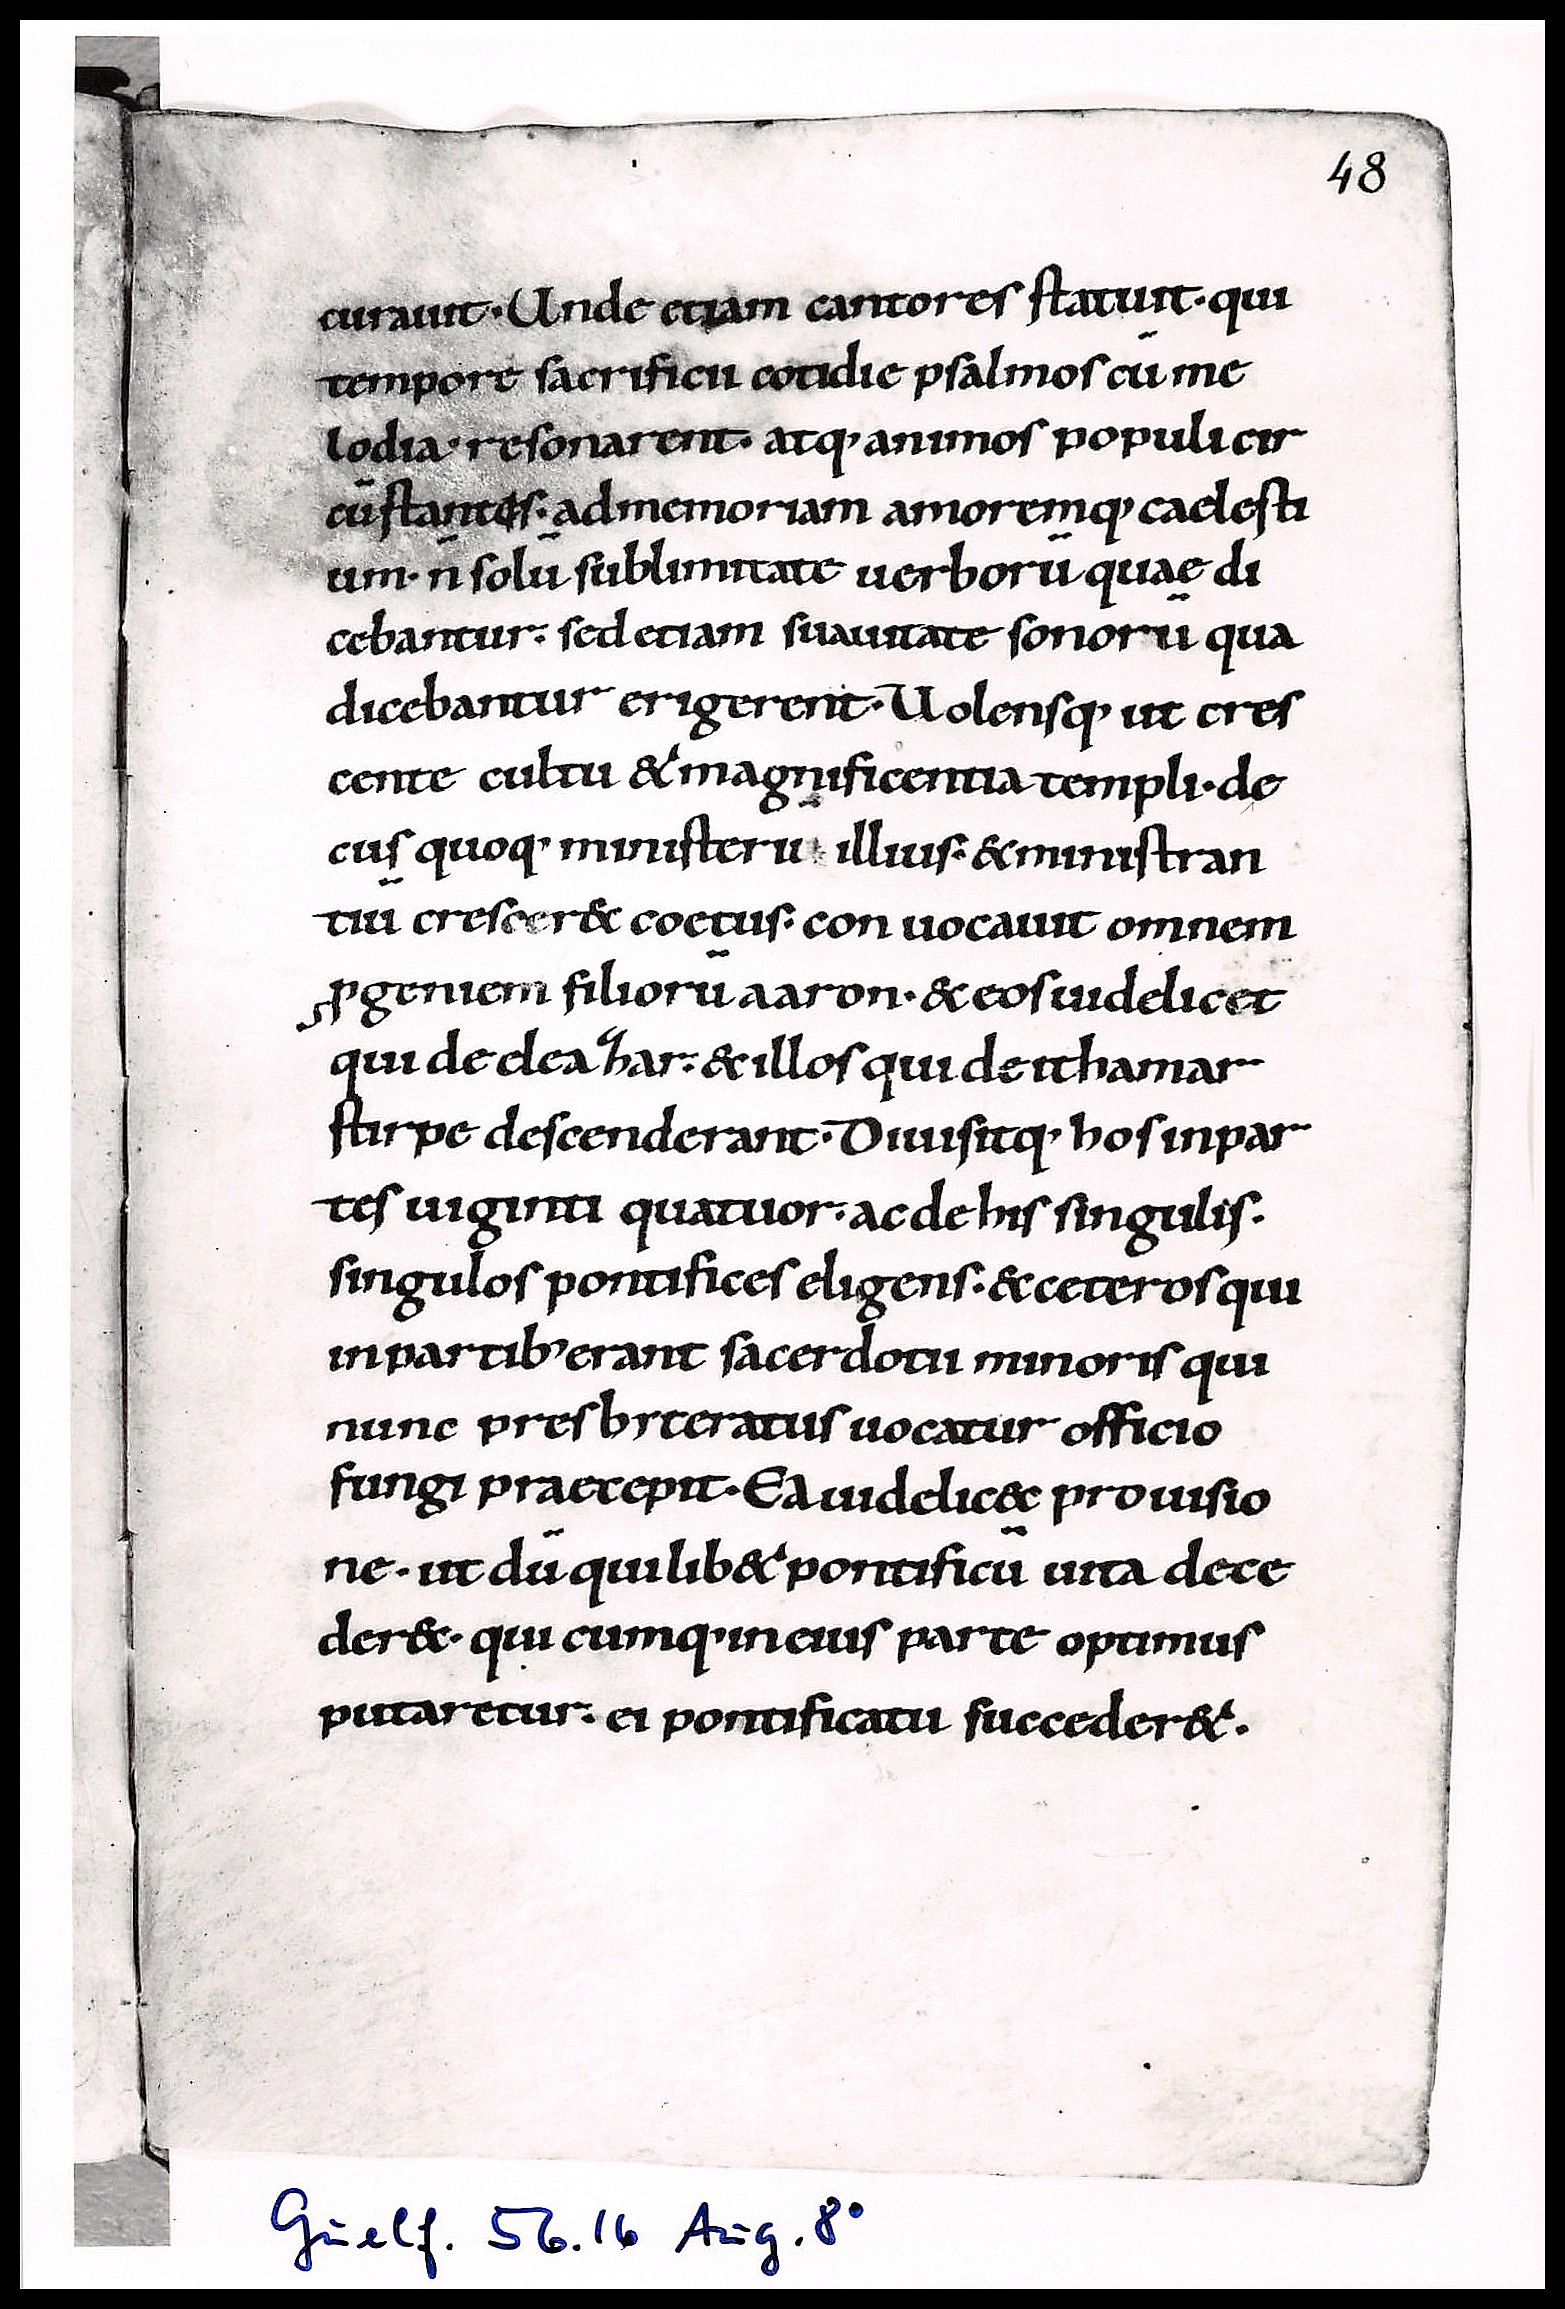 48
curauit· Unde etiam cantores statuit· qui
tempore sacrificii cotidie psalmos cū me
lodia· resonarent· atq' animos populi cir
cūstantes· ad memoriam amoremq' caelesti
um· n̄ solū sublimitate uerborū quae di
cebantur· sed etiam suauitate sonorū qua
dicebantur erigerent· Uolensq' ut cres
cente cultu & magnificentia templi· de
cus quoq' ministerii illius· & ministran
tiū crescer& coetus· conuocauit omnem
ꝓgeniem filiorū aaron· & eos uidelicet
qui de eleahar· & illos qui de ithamar
stirpe descenderant· Diuisitq' hos in par
tes uiginti quatuor· ac de his singulis·
singulos pontifices eligens· & ceteros qui
in partib' erant sacerdotii minoris qui
nunc presbyteratus uocatur officio
fungi praecepit· Ea uidelic& prouisio
ne· ut dū quilib& pontificū uita dece
der&· qui cumq' in eius parte optimus
putaretur· ei pontificatu succeder&·
Guelf. 56.16 Aug. 8°